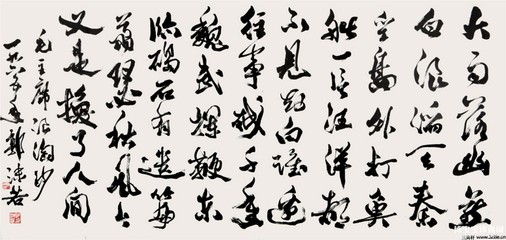 大雨落幽燕
白浪滔天秦
皇島外打魚
船一片汪洋都
不見知向誰邊
往事越千年
魏武揮鞭東
臨碣石有遺篇
蕭瑟秋風今
又是換了人間
毛主席浪淘沙
一九六年郭沫若